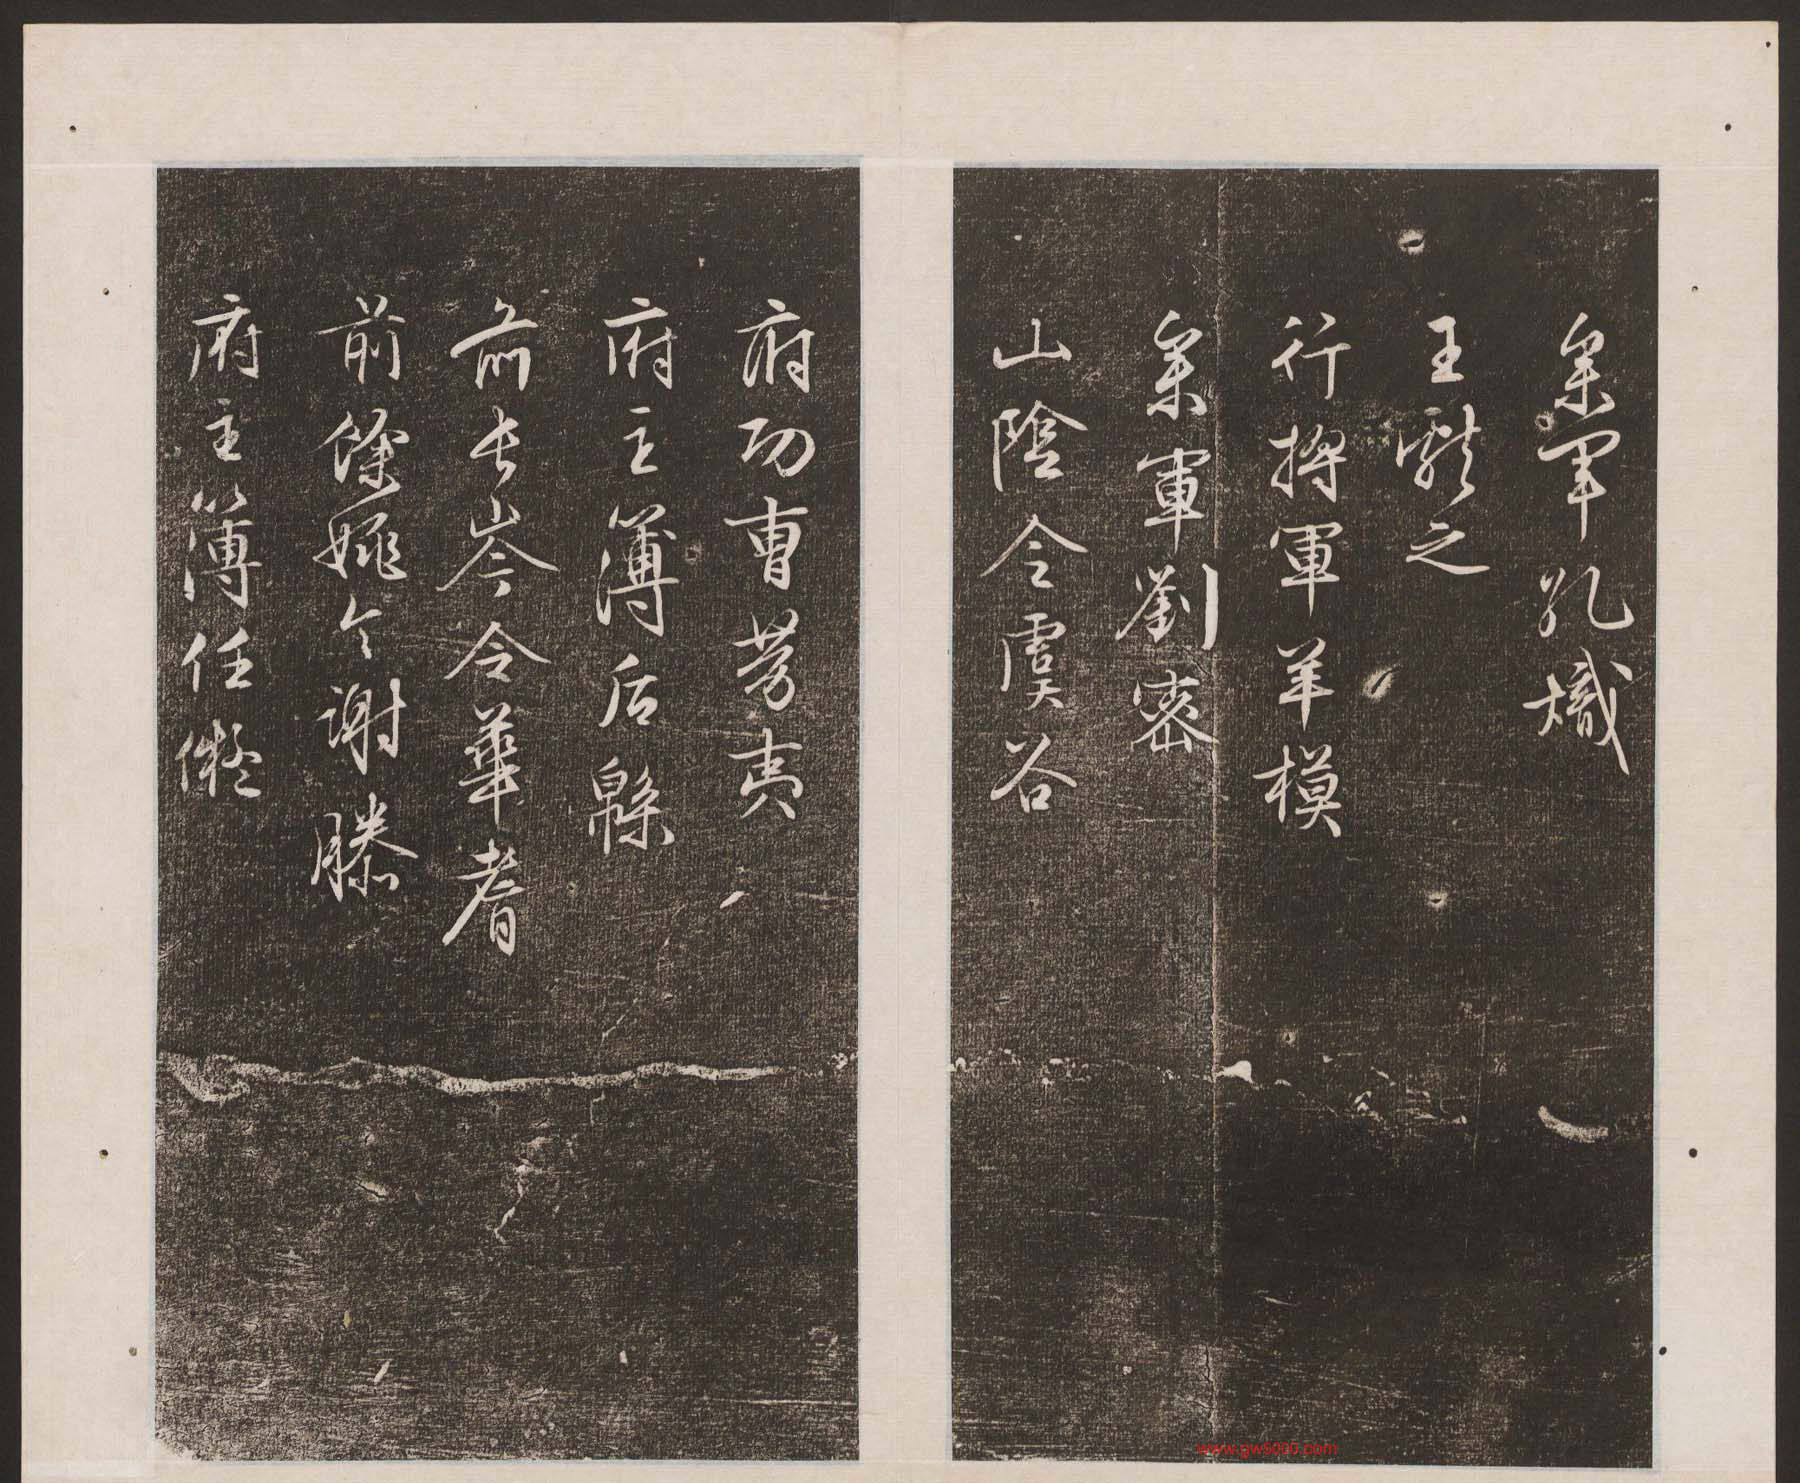 叅軍孔熾
王獻之
行叅軍羊模
叅軍劉密
山陰令虞谷
府功曹勞夷
府主簿后綿
前長岑令華耆
前餘姚令謝滕
府主簿任儗
www.gw5000.com